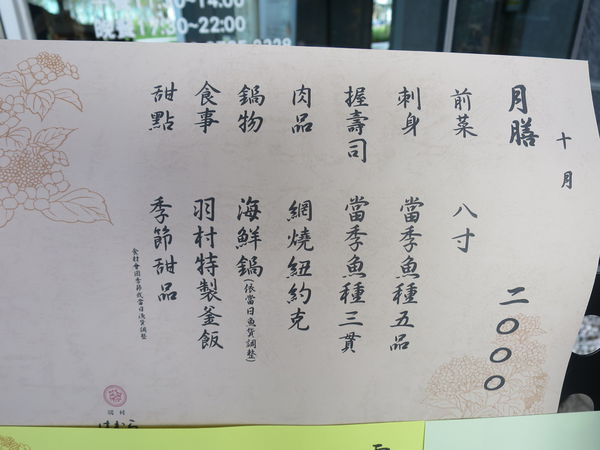 十月
月膳 二〇〇〇
前菜 八寸
刺身 當季魚種五品
握壽司 當季魚種三貫
肉品 網燒紐約克
鍋物 海鮮鍋(依當日魚貨調整)
食事 羽村特製釜飯
甜點 季節甜品
食材會因季節或當日漁貨調整
羽村
はむら
17:30~22:00